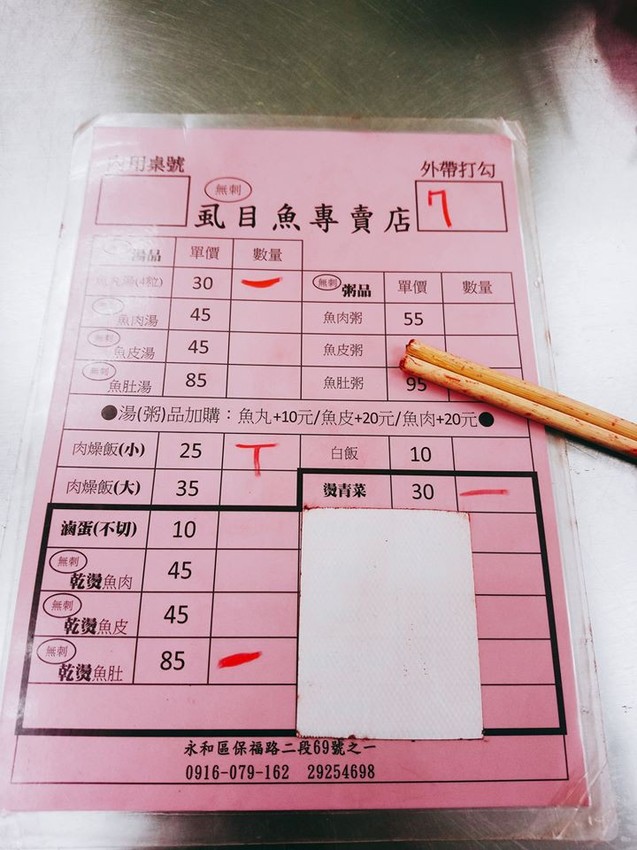 內用桌號 外帶打勾
無刺 7
虱目魚專賣店
湯品 單價 數量
魚丸湯(4粒) 30 一 無刺 粥品 單價 數量
無刺 魚肉湯 45 魚肉粥 55
無刺 魚皮湯 45 魚皮粥
無刺 魚肚湯 85 魚肚粥 95
●湯(粥)品加購：魚丸+10元/魚皮+20元/魚肉+20元●
肉燥飯(小) 25 丅 白飯 10
肉燥飯(大) 35 燙青菜 30 一
滷蛋(不切) 10
無刺 乾燙魚肉 45
無刺 乾燙魚皮 45
無刺 乾燙魚肚 85 一
永和區保福路二段69號之一
0916-079-162 29254698